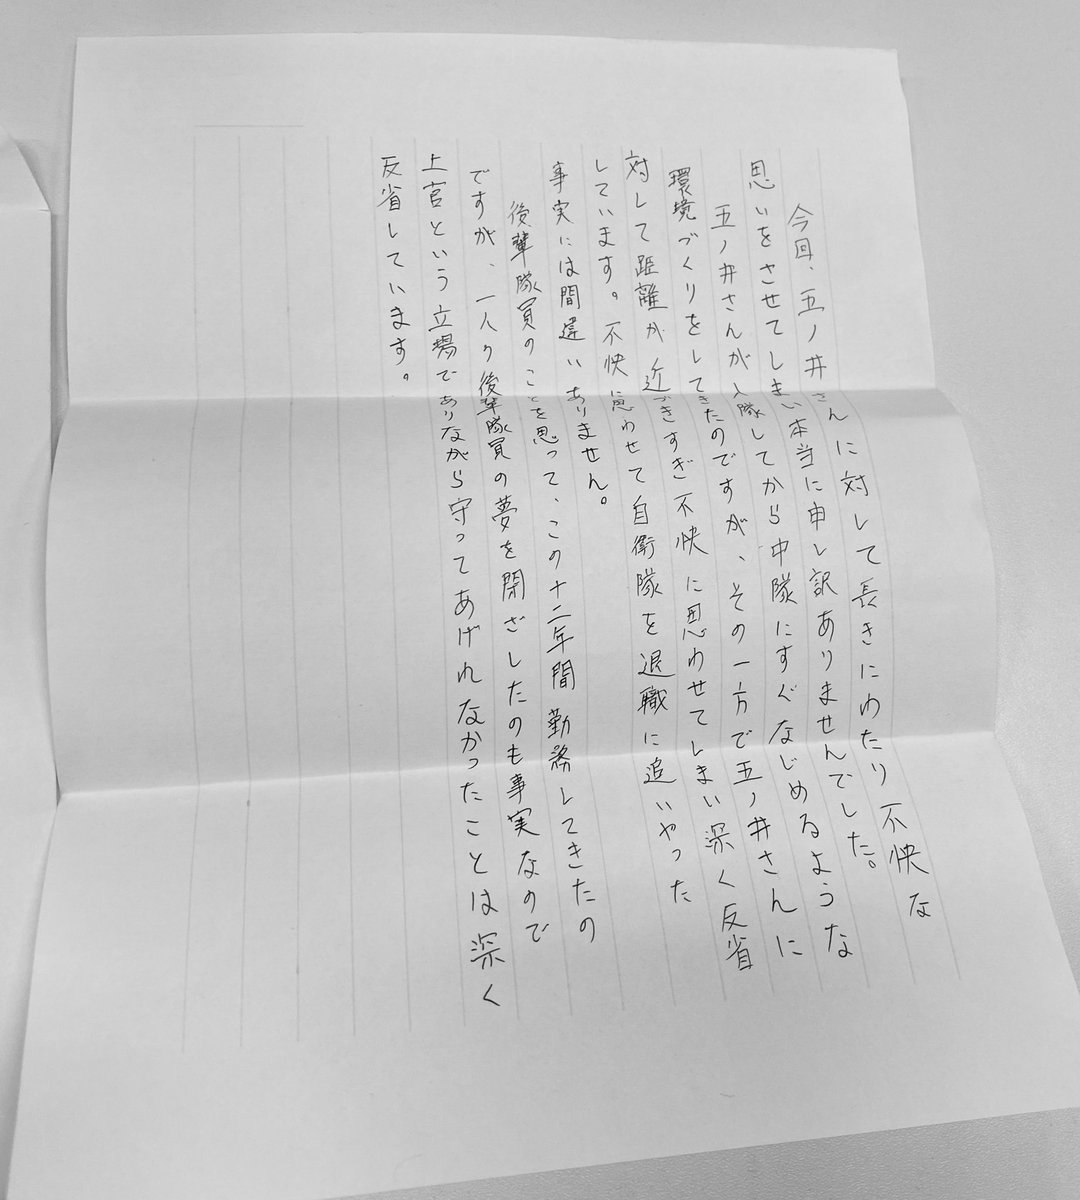 今回、五ノ井さんに対して長きにわたり不快な
思いをさせてしまい本当に申し訳ありませんでした。
五ノ井さんが入隊してから中隊にすぐなじめるような
環境づくりをしてきたのですが、その一方で五ノ井さんに
対して距離が近づきすぎ不快に思わせてしまい深く反省
しています。不快に思わせて自衛隊を退職に追いやった
事実には間違いありません。
後輩隊員のことを思って、この十二年間勤務してきたの
ですが、一人の後輩隊員の夢を閉ざしたのも事実なので
上官という立場でありながら守ってあげれなかったことは深く
反省しています。